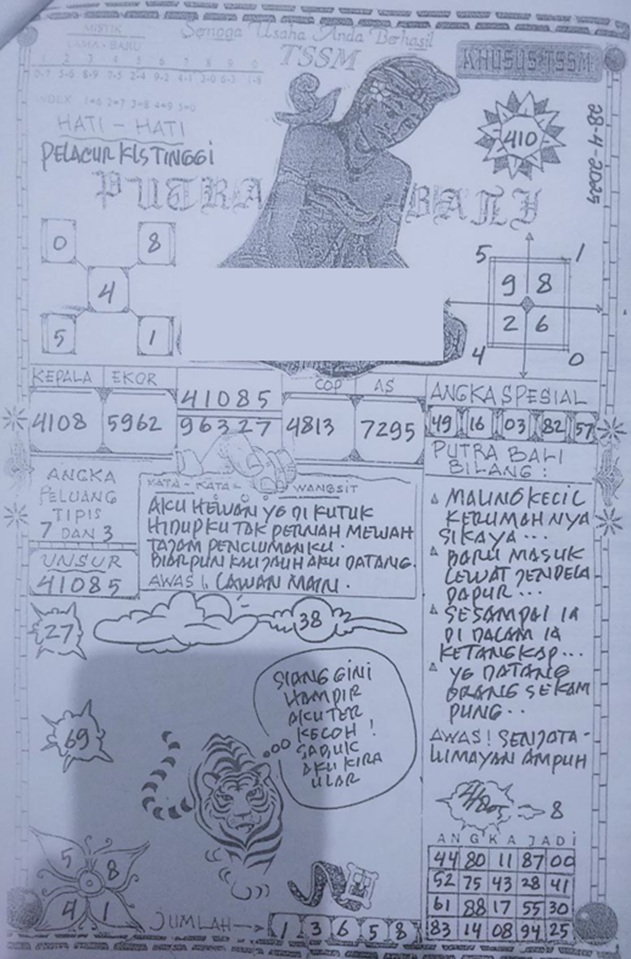 MISTIK
LAMA - BARU
1 2 3 4 5 6 7 8 9 0
INDEX
Semoga Usaha Anda Berhasil
TSSM
KHUSUS TSSM
HATI - HATI
PELACUR KLS TINGGI
410
28-4-2025
PUTRA BALI
0 8
4
5 1
5 1
9 8
2 6
4 0
KEPALA EKOR
4108 5962
41085
96327
COP AS
4813 7295
ANGKA SPESIAL
49 16 03 82 57
ANGKA
PELUANG
TIPIS
7 DAN 3
UNSUR
41085
KATA - KATA WANGSIT
AKU HEWAN YG DI KUTUK
HIDUPKU TAK PERNAH MEWAH
TAJAM PENCIUMANKU.
BIARPUN KAU JAUH AKU DATANG.
AWAS! LAWAN MAIN.
PUTRA BALI
BILANG :
MALING KECIL
KERUMAHNYA
SIKAYA...
BARU MASUK
LEWAT JENDELA
DAPUR...
SESAMPAI IA
DI DALAM IA
KETANGKAP...
YG DATANG
ORANG SEKAM
PUNG..
AWAS! SENJATA -
LUMAYAN AMPUH
27
38
69
SIANG GINI
HAMPIR
AKU TER
KECOH !
SABUK
AKU KIRA
ULAR
8
ANGKA JADI
44 80 11 87 00
52 75 43 28 41
61 88 17 55 30
83 14 08 94 25
5 8
4 1
JUMLAH 1 3 6 5 8